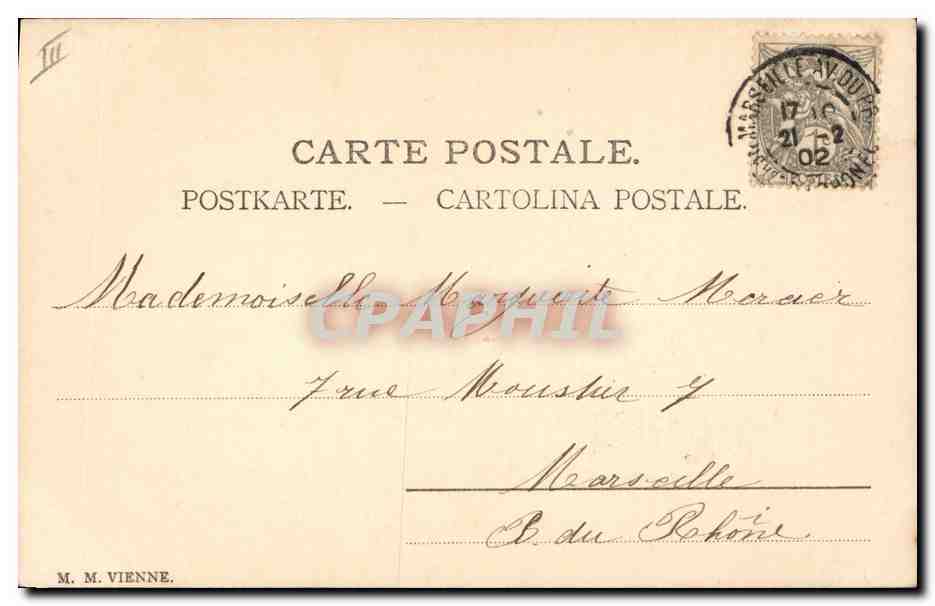 III
MARSEILLE AV. DU
17
21 2
02
CARTE POSTALE.
POSTKARTE. — CARTOLINA POSTALE.
Mademoiselle Marguerite Mercier
CPAPHIL
7 rue Moustier 7
Marseille
B. du Rhône.
M. M. VIENNE.